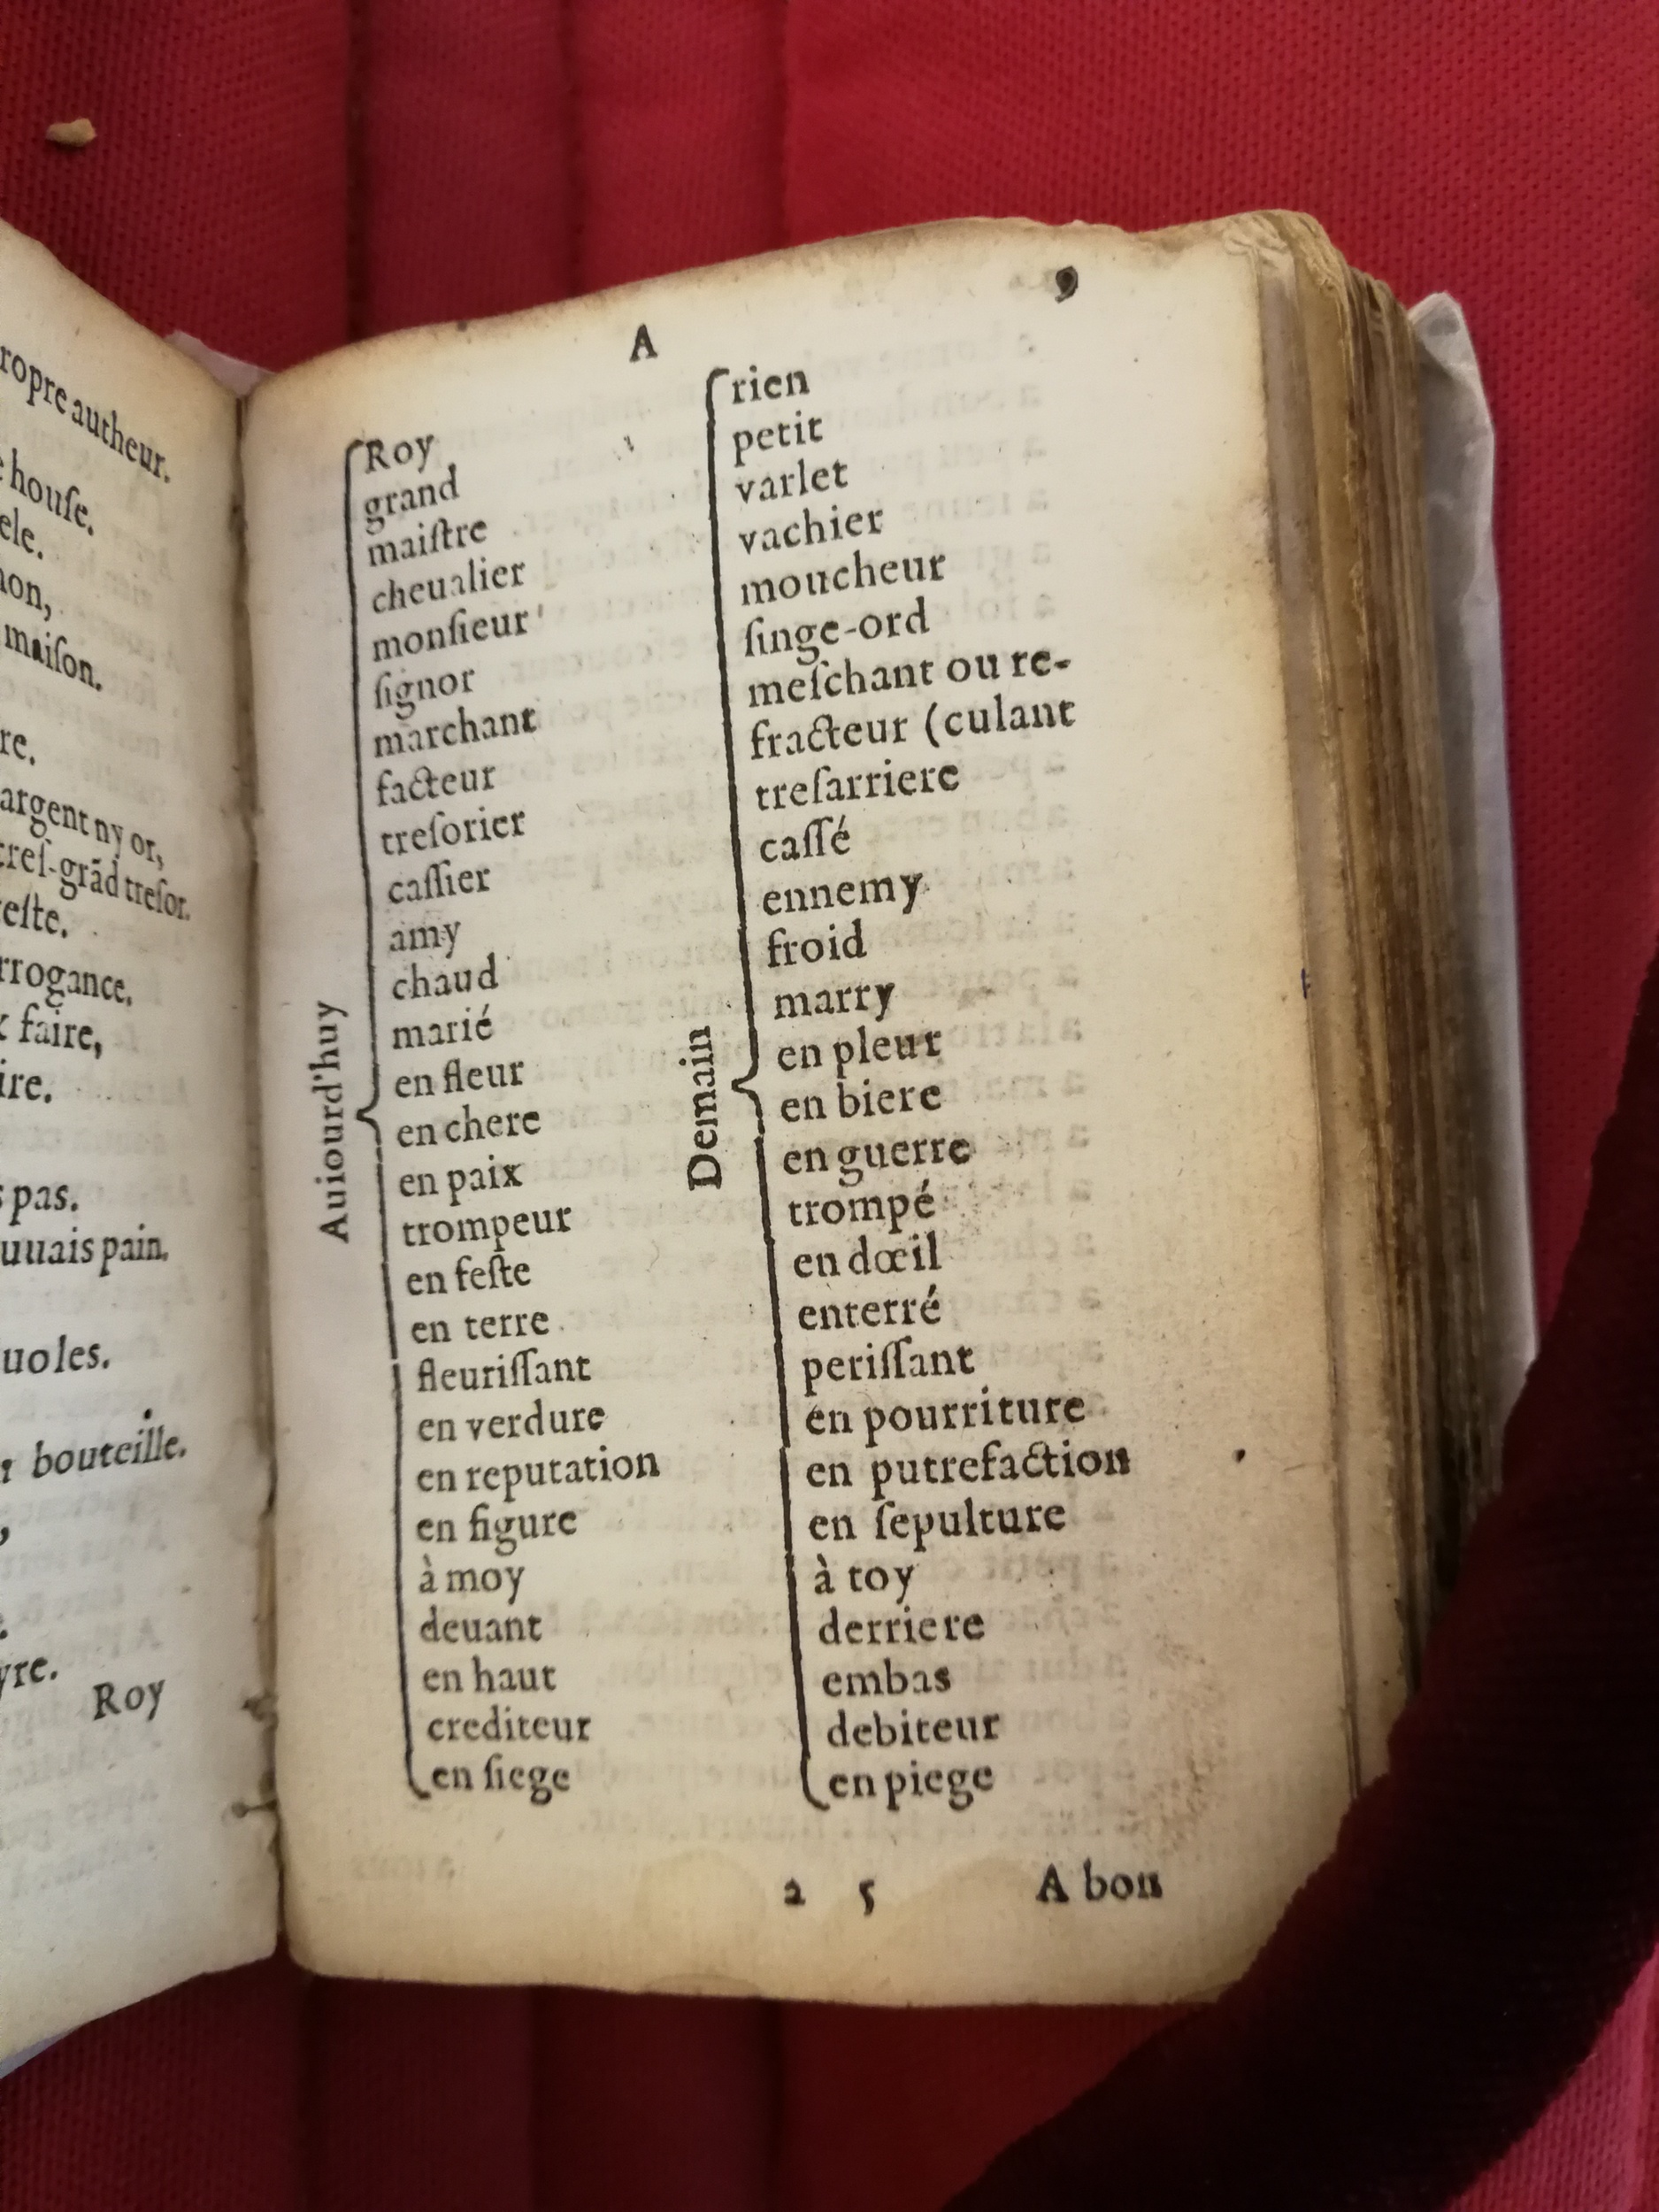 ropre autheur.
houſe.
ele.
non,
maiſon.
re.
argent ny or,
treſ-grād treſor.
eſte.
rrogance,
faire,
ire.
pas.
uuais pain.
uoles.
bouteille.
yre.
Roy
A 9
Auiourd'huy
Roy
grand
maiſtre
cheualier
monſieur
ſignor
marchant
facteur
treſorier
caſſier
amy
chaud
marié
en fleur
en chere
en paix
trompeur
en feſte
en terre
fleuriſſant
en verdure
en reputation
en figure
à moy
deuant
en haut
crediteur
en ſiege
Demain
rien
petit
varlet
vachier
moucheur
ſinge-ord
meſchant ou re-
fracteur (culant
treſarriere
caſſé
ennemy
froid
marry
en pleur
en biere
en guerre
trompé
en dœil
enterré
periſſant
en pourriture
en putrefaction
en ſepulture
à toy
derriere
embas
debiteur
en piege
2 5 A bon